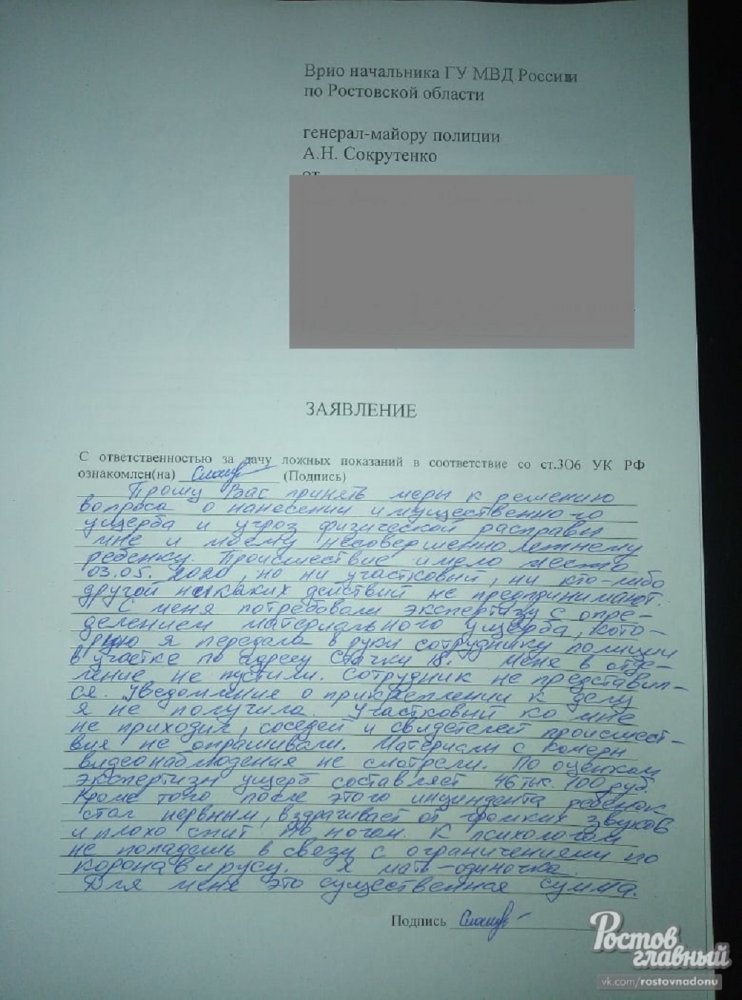 Врио начальника ГУ МВД России
по Ростовской области
генерал-майору полиции
А.Н. Сокрутенко
от
ЗАЯВЛЕНИЕ
С ответственностью за дачу ложных показаний в соответствие со ст.306 УК РФ
ознакомлен(на) (Подпись)
Прошу Вас принять меры к решению
вопроса о нанесении имущественного
ущерба и угроз физической расправы
мне и моему несовершеннолетнему
ребенку. Происшествие имело место
03.05. 2020, но ни участковый, ни кто-либо
другой никаких действий не предпринимают.
С меня потребовали экспертизу с опре-
делением материального ущерба, кото-
рую я передала в руки сотруднику полиции
в участке по адресу Стачки 18. Меня в отде-
ление не пустили. Сотрудник не представил-
ся. Уведомление о прикреплении к делу
я не получила. Участковый ко мне
не приходил, соседей и свидетелей происшест-
вия не опрашивали. Материалы с камеры
видеонаблюдения не смотрели. По оценкам
экспертизы ущерб составляет 46 тыс. 100 руб.
Кроме того после этого инцидента ребенок
стал нервным, вздрагивает от громких звуков
и плохо спит по ночам. К психологам
не попадешь в связи с ограничениями по
коронавирусу. Я мать-одиночка.
Для меня это существенная сумма.
Подпись
Ростов
главный
vk.com/rostovnadonu